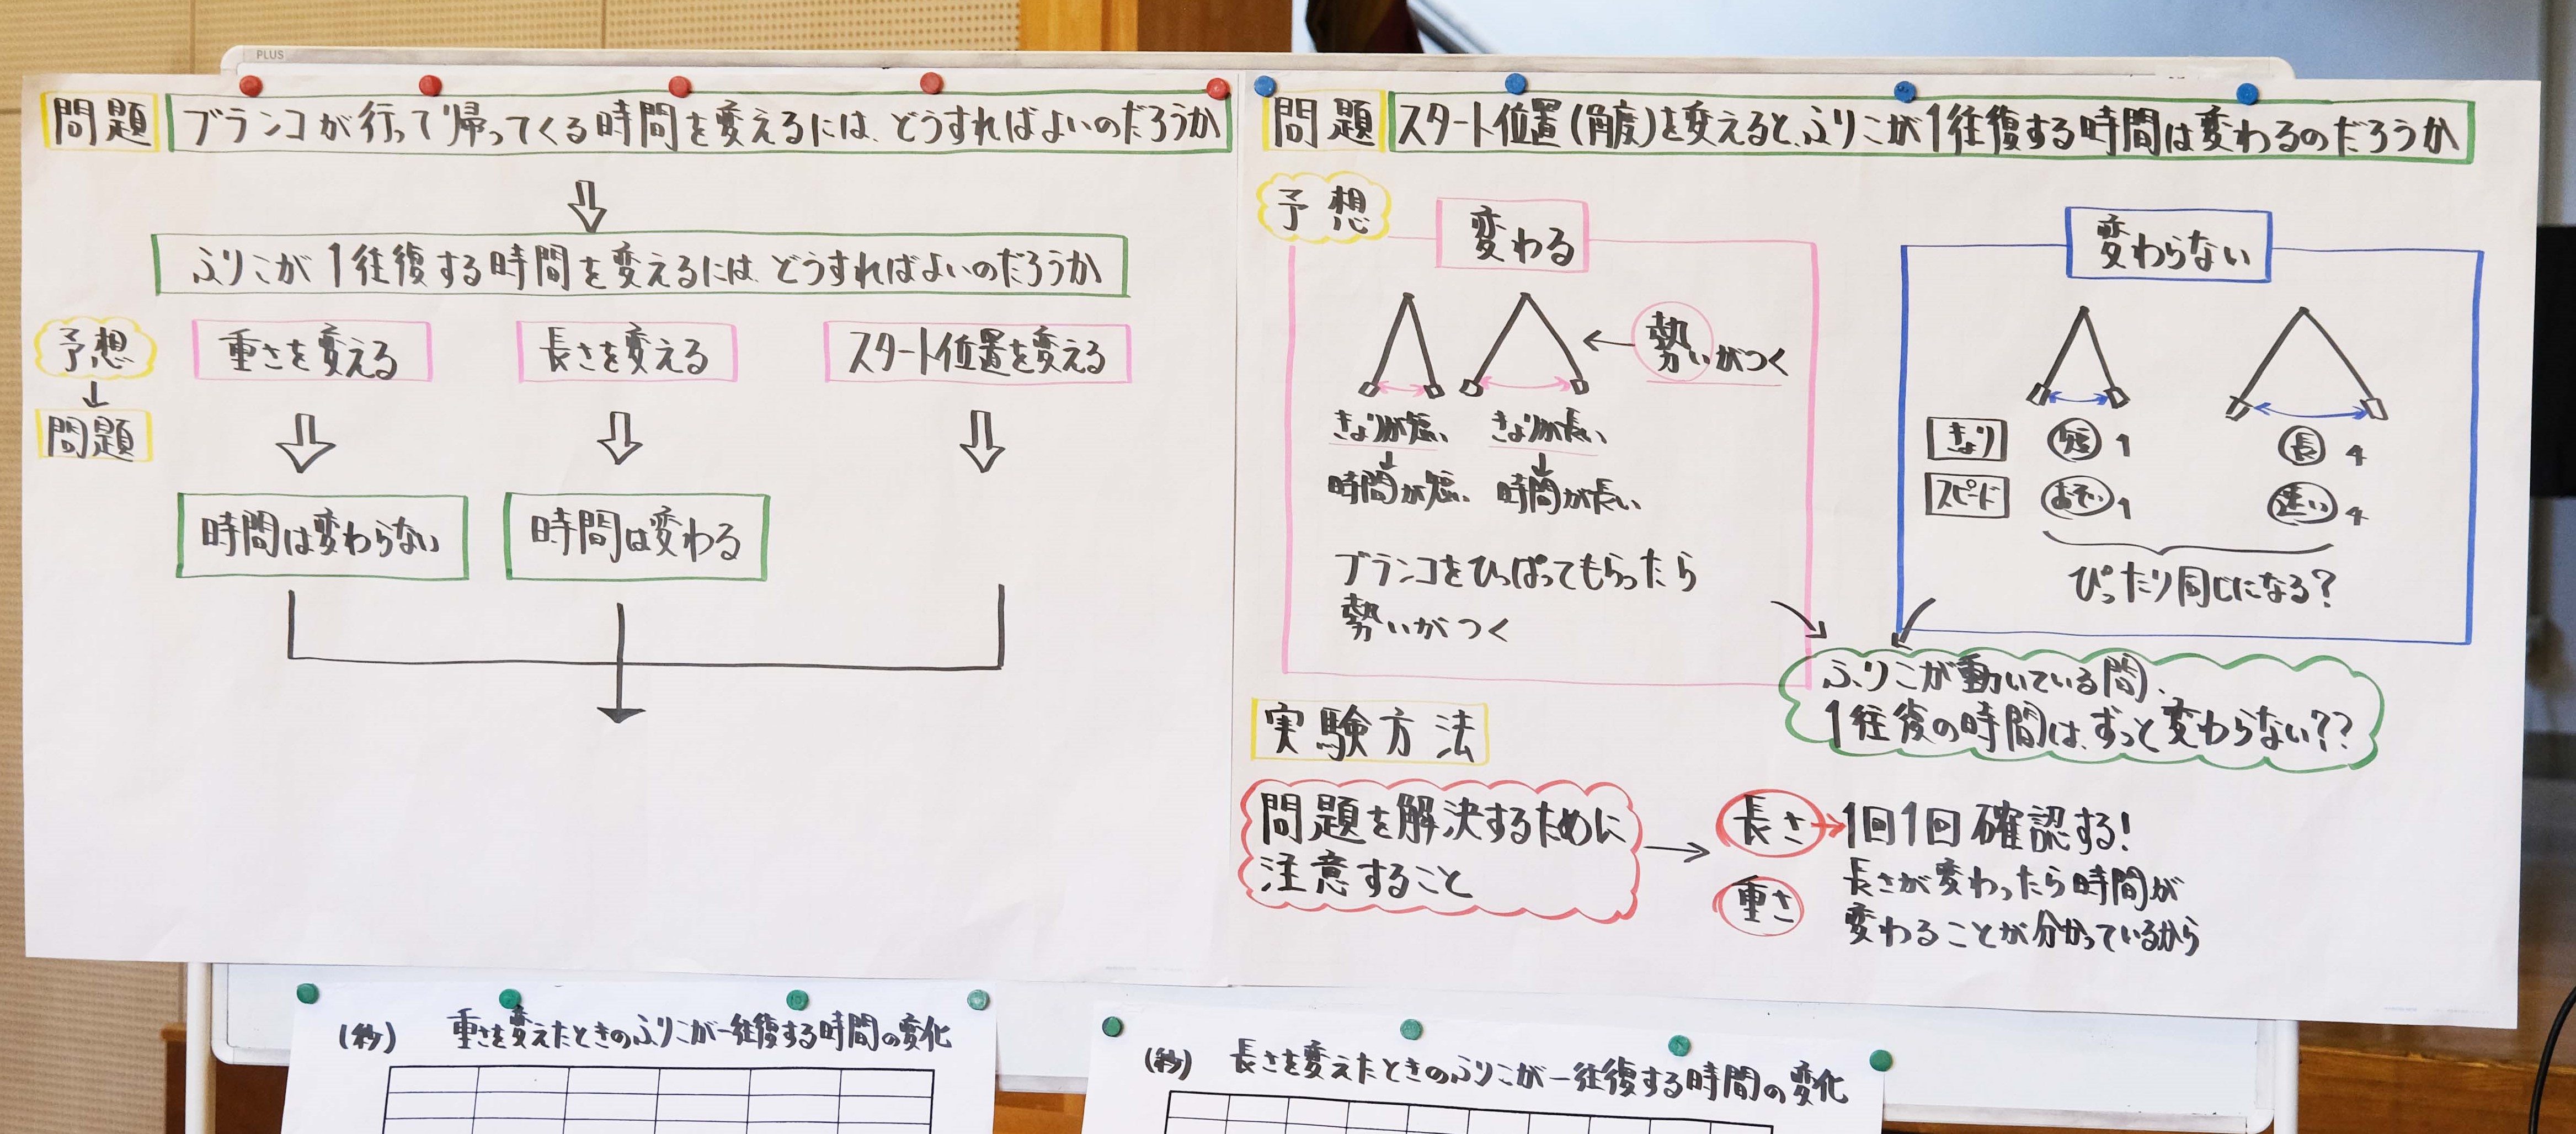 PLUS
問題 ブランコが行って帰ってくる時間を変えるには、どうすればよいのだろうか
ふりこが1往復する時間を変えるには、どうすればよいのだろうか
予想
重さを変える 長さを変える スタート位置を変える
問題
時間は変わらない 時間は変わる
問題 スタート位置(角度)を変えると、ふりこが1往復する時間は変わるのだろうか
予想
変わる
勢いがつく
きょりが短い きょりが長い
時間が短い 時間が長い
ブランコをひっぱってもらったら
勢いがつく
変わらない
きょり 短 1 長 4
スピード おそい 1 速い 4
ぴったり同じになる?
ふりこが動いている間、
1往復の時間は、ずっと変わらない??
実験方法
問題を解決するために
注意すること
長さ→1回1回確認する!
長さが変わったら時間が
変わることが分かっているから
重さ
(秒) 重さを変えたときのふりこが一往復する時間の変化
(秒) 長さを変えたときのふりこが一往復する時間の変化